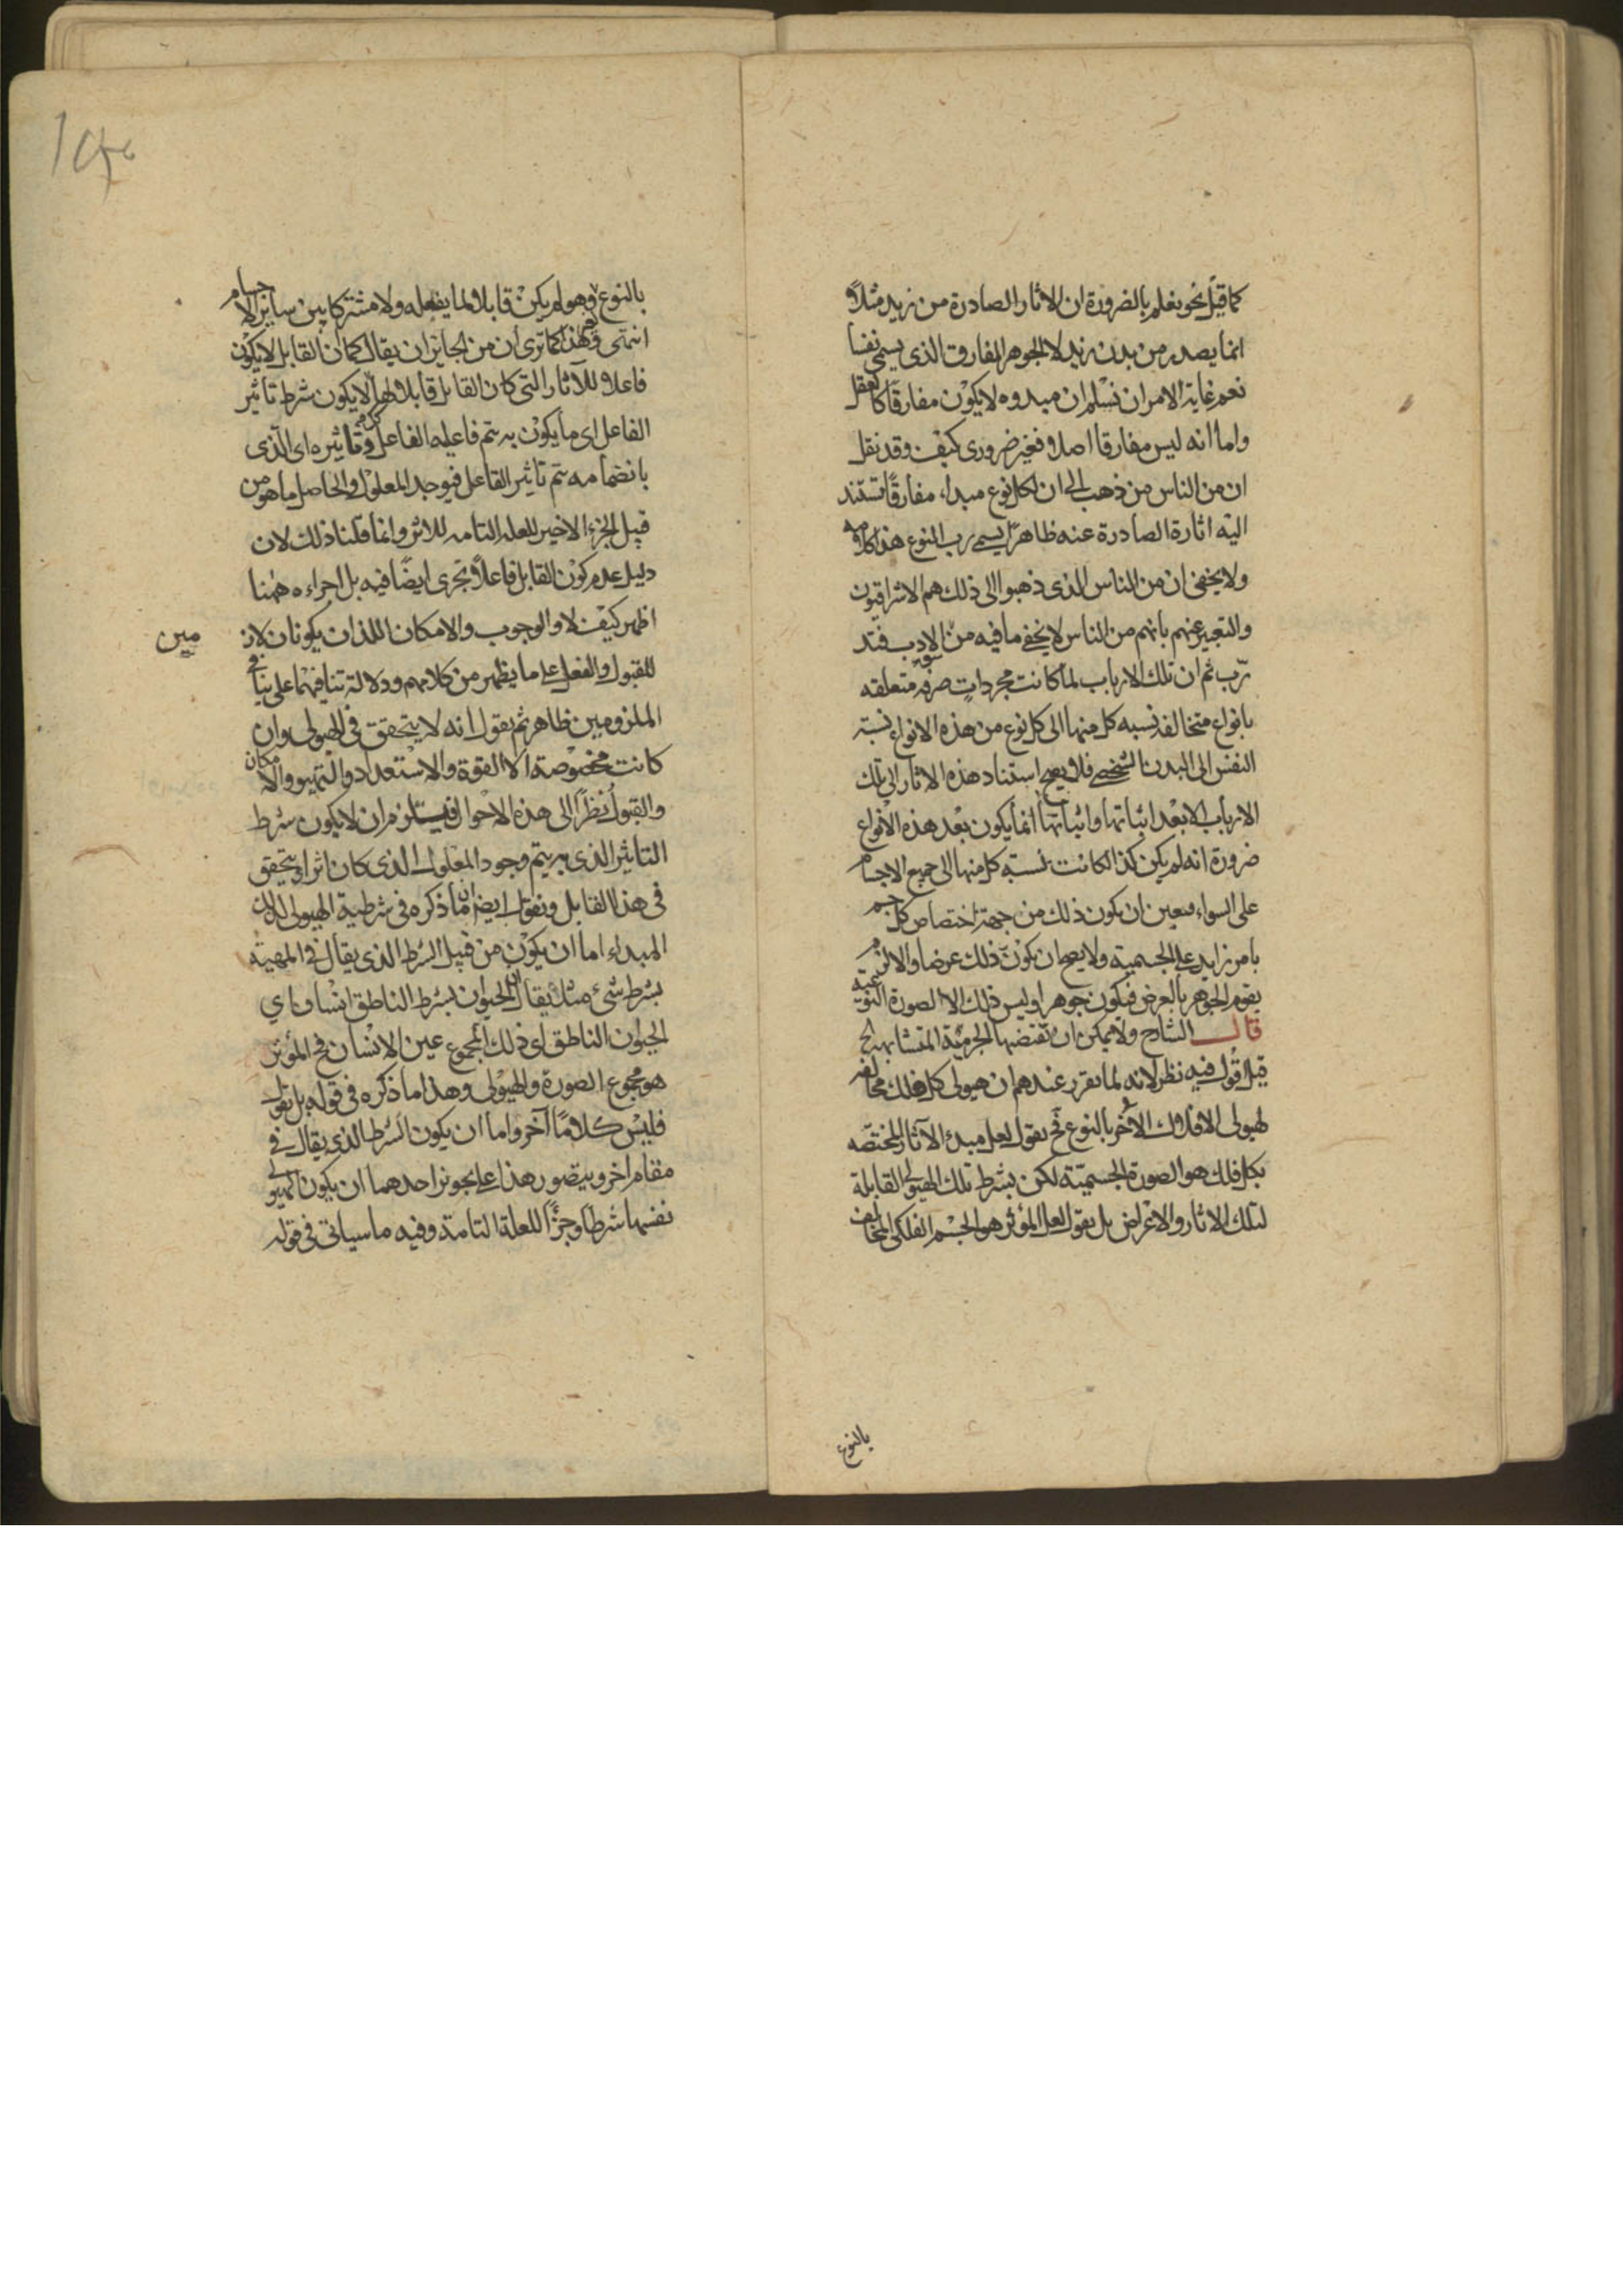 كما قيل نحو نعلم بالضرورة ان الاثار الصادرة من زيد مثلا
انما يصدر من بدن زيد لا الجوهر المفارق الذى يسمى نفسا
نعم غاية الامر ان نسلم ان مبدوه لا يكون مفارقا كالعقل
واما انه ليس مفارقا اصلا فغير ضرورى كيف وقد نقل
ان من الناس من ذهب الى ان لكل نوع مبداء مفارقا تستند
اليه اثارة الصادرة عنه ظاهرا يسمى رب النوع هذا كلامه
ولا يخفى ان من الناس الذى ذهبوا الى ذلك هم الاشراقيون
والتعبير عنهم بانهم من الناس لا يخفى ما فيه من سوء الادب فتد
رّب ثم ان تلك الارباب لما كانت مجردات صرفه متعلقه
بانواع متخالفه نسبه كل منها الى كل نوع من هذه الانواع نسبة
النفس الى البدن الشخصى فلا يصح استناد هذه الاثار الى تلك
الارباب الا بعد اثباتها واثباتها انما يكون بعد هذه الانواع
ضرورة انه لم يكن كذا لكانت نسبته كل منها الى جميع الاجسام
على السواء فتعين ان يكون ذلك من جهة اختصاص كل جسم
بامر زايد على الجسمية ولا يصح ان يكون ذلك عرضا والا لزم
يقوم الجوهر بالعرض فيكون جوهرا وليس ذلك الا الصورة النوعية
قال الشارح ولا يمكن ان تقتضيها الجرمية المتشابهة الخ
قيل اقول فيه نظر لانه لما تقرر عندهم ان هيولى كل فلك مخالفه
لهيولى الافلاك الأخر بالنوع فح نقول لعل مبدء الآثار المختصه
بكل فلك هو الصورة الجسمية لكن بشرط تلك الهيولى القابلة
لتلك الاثار والاعراض بل نقول لعل المؤثر هو الجسم الفلكى المخالف
بالنوع
بالنوع وهو لم يكن قابلا لما يفعله ولا مشتركا بين ساير الاجسام
انتهى وهذا كما ترى ان من الجايز ان يقال كما ان القابل لا يكون
فاعلا للآثار التى كان القابل قابلا لها لا يكون شرط تاثير
الفاعل اى ما يكون به يتم فاعليه الفاعل وتاثيره اى الذى
بانضمامه يتم تاثير الفاعل فيوجد المعلول والحاصل ما هو من
قبيل الجزء الاخير للعله التامه للاثر وانما قلنا ذلك لان
دليل عدم كون القابل فاعلا تجرى ايضا فيه بل اجراءه ههنا
اظهر كيف لا والوجوب والامكان اللذان يكونان لاز
مين
للقبول والفعل على ما يظهر من كلامهم ودلالة تنافيهما على تنافى
الملزومين ظاهر ثم نقول انه لا يتحقق فى الهيولى وان
كانت مخصوصة الا القوة والاستعداد والتهيو والامكان
والقبول نظرا الى هذه الاحوال فيستلزم ان لا يكون شرط
التاثير الذى به يتم وجود المعلول الذى كان اثرا يتحقق
فى هذا القابل ونقول ايضا ان ما ذكره فى شرطية الهيولى لذلك
المبداء اما ان يكون من قبيل الشرط الذى يقال فى المهية
بشرط شئ مثلا يقال الحيوان بشرط الناطق انسان اي
الحيوان الناطق اى ذلك المجموع عين الانسان فح المؤثر
هو مجموع الصورة والهيولى وهذا ما ذكره فى قوله بل نقول
فليس كلامًا آخر واما ان يكون الشرط الذى يقال فى
مقام اخر ويتصور هذا على تجويز احدهما ان يكون الهيولى
نفسها شرطا وجزءًا للعلة التامة وفيه ما سياتى فى قوله